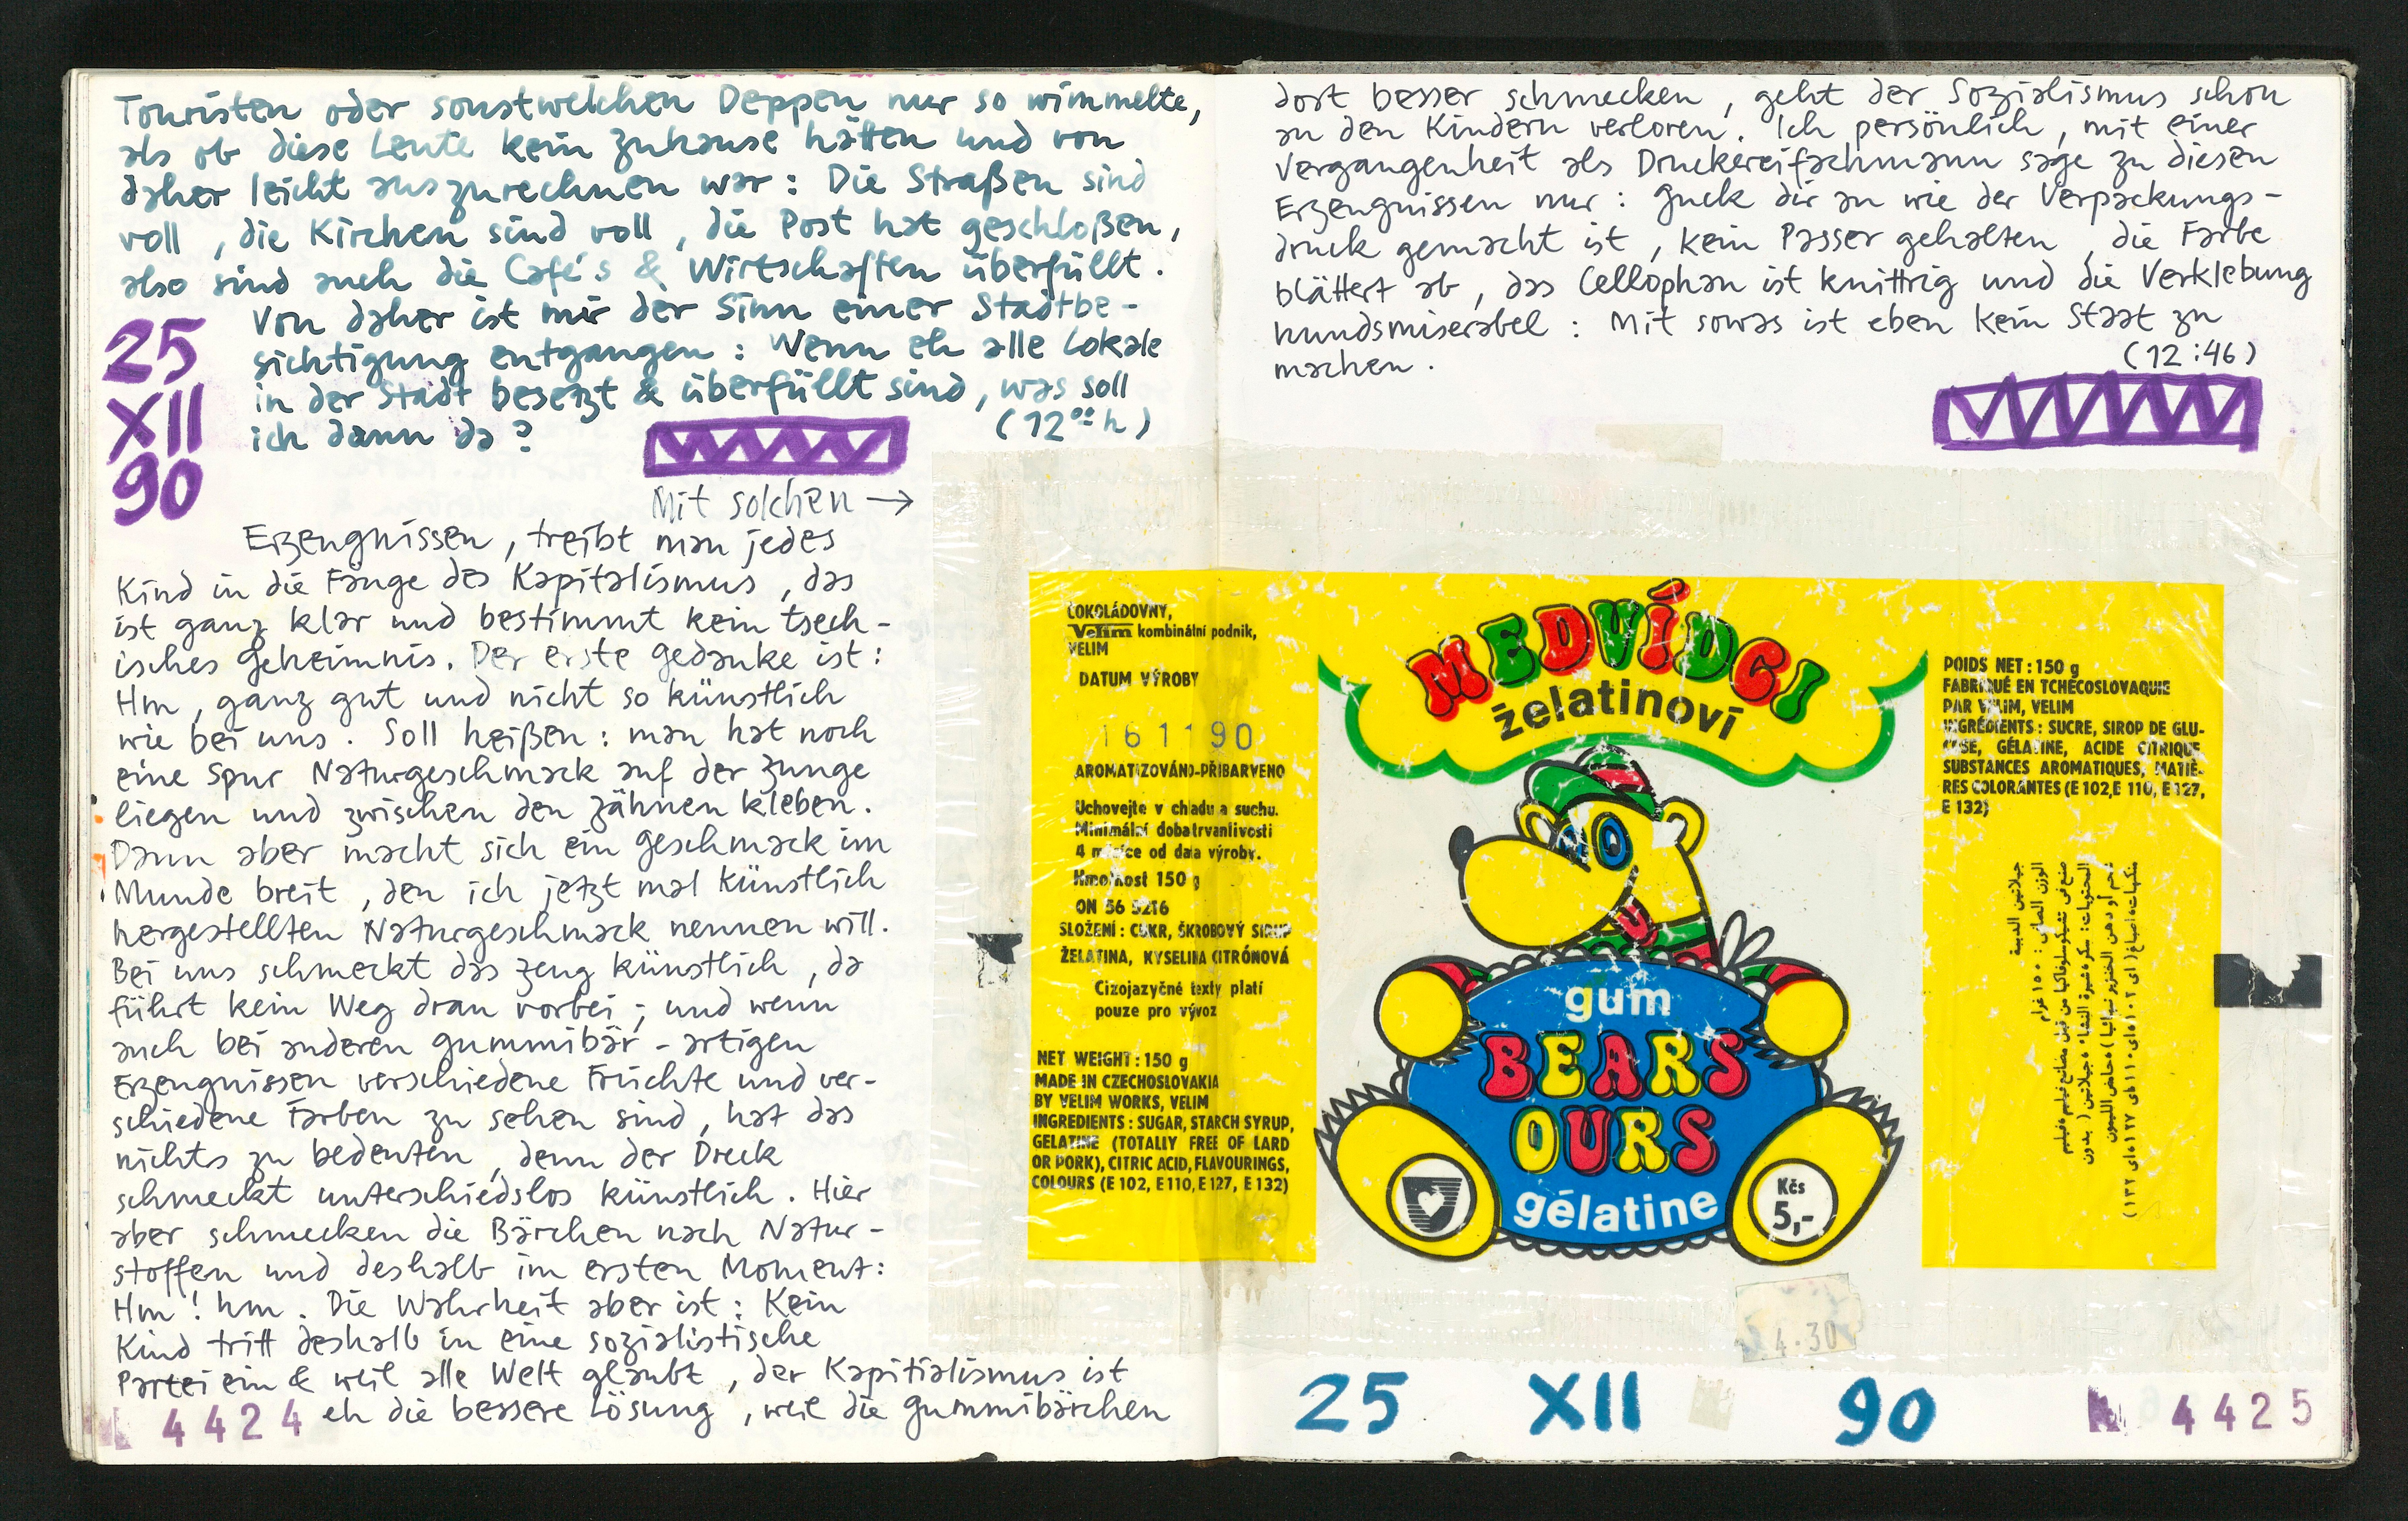 Touristen oder sonstwelchen Deppen nur so wimmelte,
als ob diese Leute kein Zuhause hätten und von
daher leicht auszurechnen war: Die Straßen sind
voll, die Kirchen sind voll, die Post hat geschloßen,
also sind auch die Café's & Wirtschaften überfüllt.
Von daher ist mir der Sinn einer Stadtbe-
sichtigung entgangen: Wenn eh alle Lokale
in der Stadt besetzt & überfüllt sind, was soll
ich dann da?
(12°° h)
25
XII
90
Mit solchen →
Erzeugnissen, treibt man jedes
Kind in die Fänge des Kapitalismus, das
ist ganz klar und bestimmt kein tsech-
isches Geheimnis. Der erste Gedanke ist:
Hm, ganz gut und nicht so künstlich
wie bei uns. Soll heißen: man hat noch
eine Spur Naturgeschmack auf der Zunge
liegen und zwischen den Zähnen kleben.
Dann aber macht sich ein Geschmack im
Munde breit, den ich jetzt mal künstlich
hergestellten Naturgeschmack nennen will.
Bei uns schmeckt das Zeug künstlich, da
führt kein Weg dran vorbei; und wenn
auch bei anderen gummibär-artigen
Erzeugnissen verschiedene Früchte und ver-
schiedene Farben zu sehen sind, hat das
nichts zu bedeuten, denn der Dreck
schmeckt unterschiedslos künstlich. Hier
aber schmecken die Bärchen nach Natur-
stoffen und deshalb im ersten Moment:
Hm! hm. Die Wahrheit aber ist: Kein
Kind tritt deshalb in eine sozialistische
Partei ein & weil alle Welt glaubt, der Kapitialismus ist
eh die bessere Lösung, weil die Gummibärchen
4424
dort besser schmecken, geht der Sozialismus schon
an den Kindern verloren. Ich persönlich, mit einer
Vergangenheit als Druckereifachmann sage zu diesen
Erzeugnissen nur: Guck dir an wie der Verpackungs-
druck gemacht ist, kein Passer gehalten, die Farbe
blättert ab, das Cellophan ist knittrig und die Verklebung
hundsmiserabel: Mit sowas ist eben kein Staat zu
machen.
(12:46)
ČOKOLÁDOVNY,
Velim kombinální podnik,
VELIM
DATUM VÝROBY
161190
AROMATIZOVÁNO-PŘIBARVENO
Uchovejte v chladu a suchu.
Minimální doba trvanlivosti
4 měsíce od data výroby.
Hmotnost 150 g
ON 56 9216
SLOŽENÍ: CUKR, ŠKROBOVÝ SIRUP
ŽELATINA, KYSELINA CITRÓNOVÁ
Cizojazyčné texty platí
pouze pro vývoz
NET WEIGHT: 150 g
MADE IN CZECHOSLOVAKIA
BY VELIM WORKS, VELIM
INGREDIENTS: SUGAR, STARCH SYRUP,
GELATINE (TOTALLY FREE OF LARD
OR PORK), CITRIC ACID, FLAVOURINGS,
COLOURS (E 102, E 110, E 127, E 132)
MEDVÍDCI
želatinoví
gum
BEARS
OURS
gélatine
Kčs
5,-
POIDS NET: 150 g
FABRIQUÉ EN TCHÉCOSLOVAQUIE
PAR VELIM, VELIM
INGRÉDIENTS: SUCRE, SIROP DE GLU-
COSE, GÉLATINE, ACIDE CITRIQUE,
SUBSTANCES AROMATIQUES, MATIÈ-
RES COLORANTES (E 102, E 110, E 127,
E 132)
جيلاتين الدببة
الوزن الصافى: ١٥٠ غرام
4.30
25 XII 90
4425